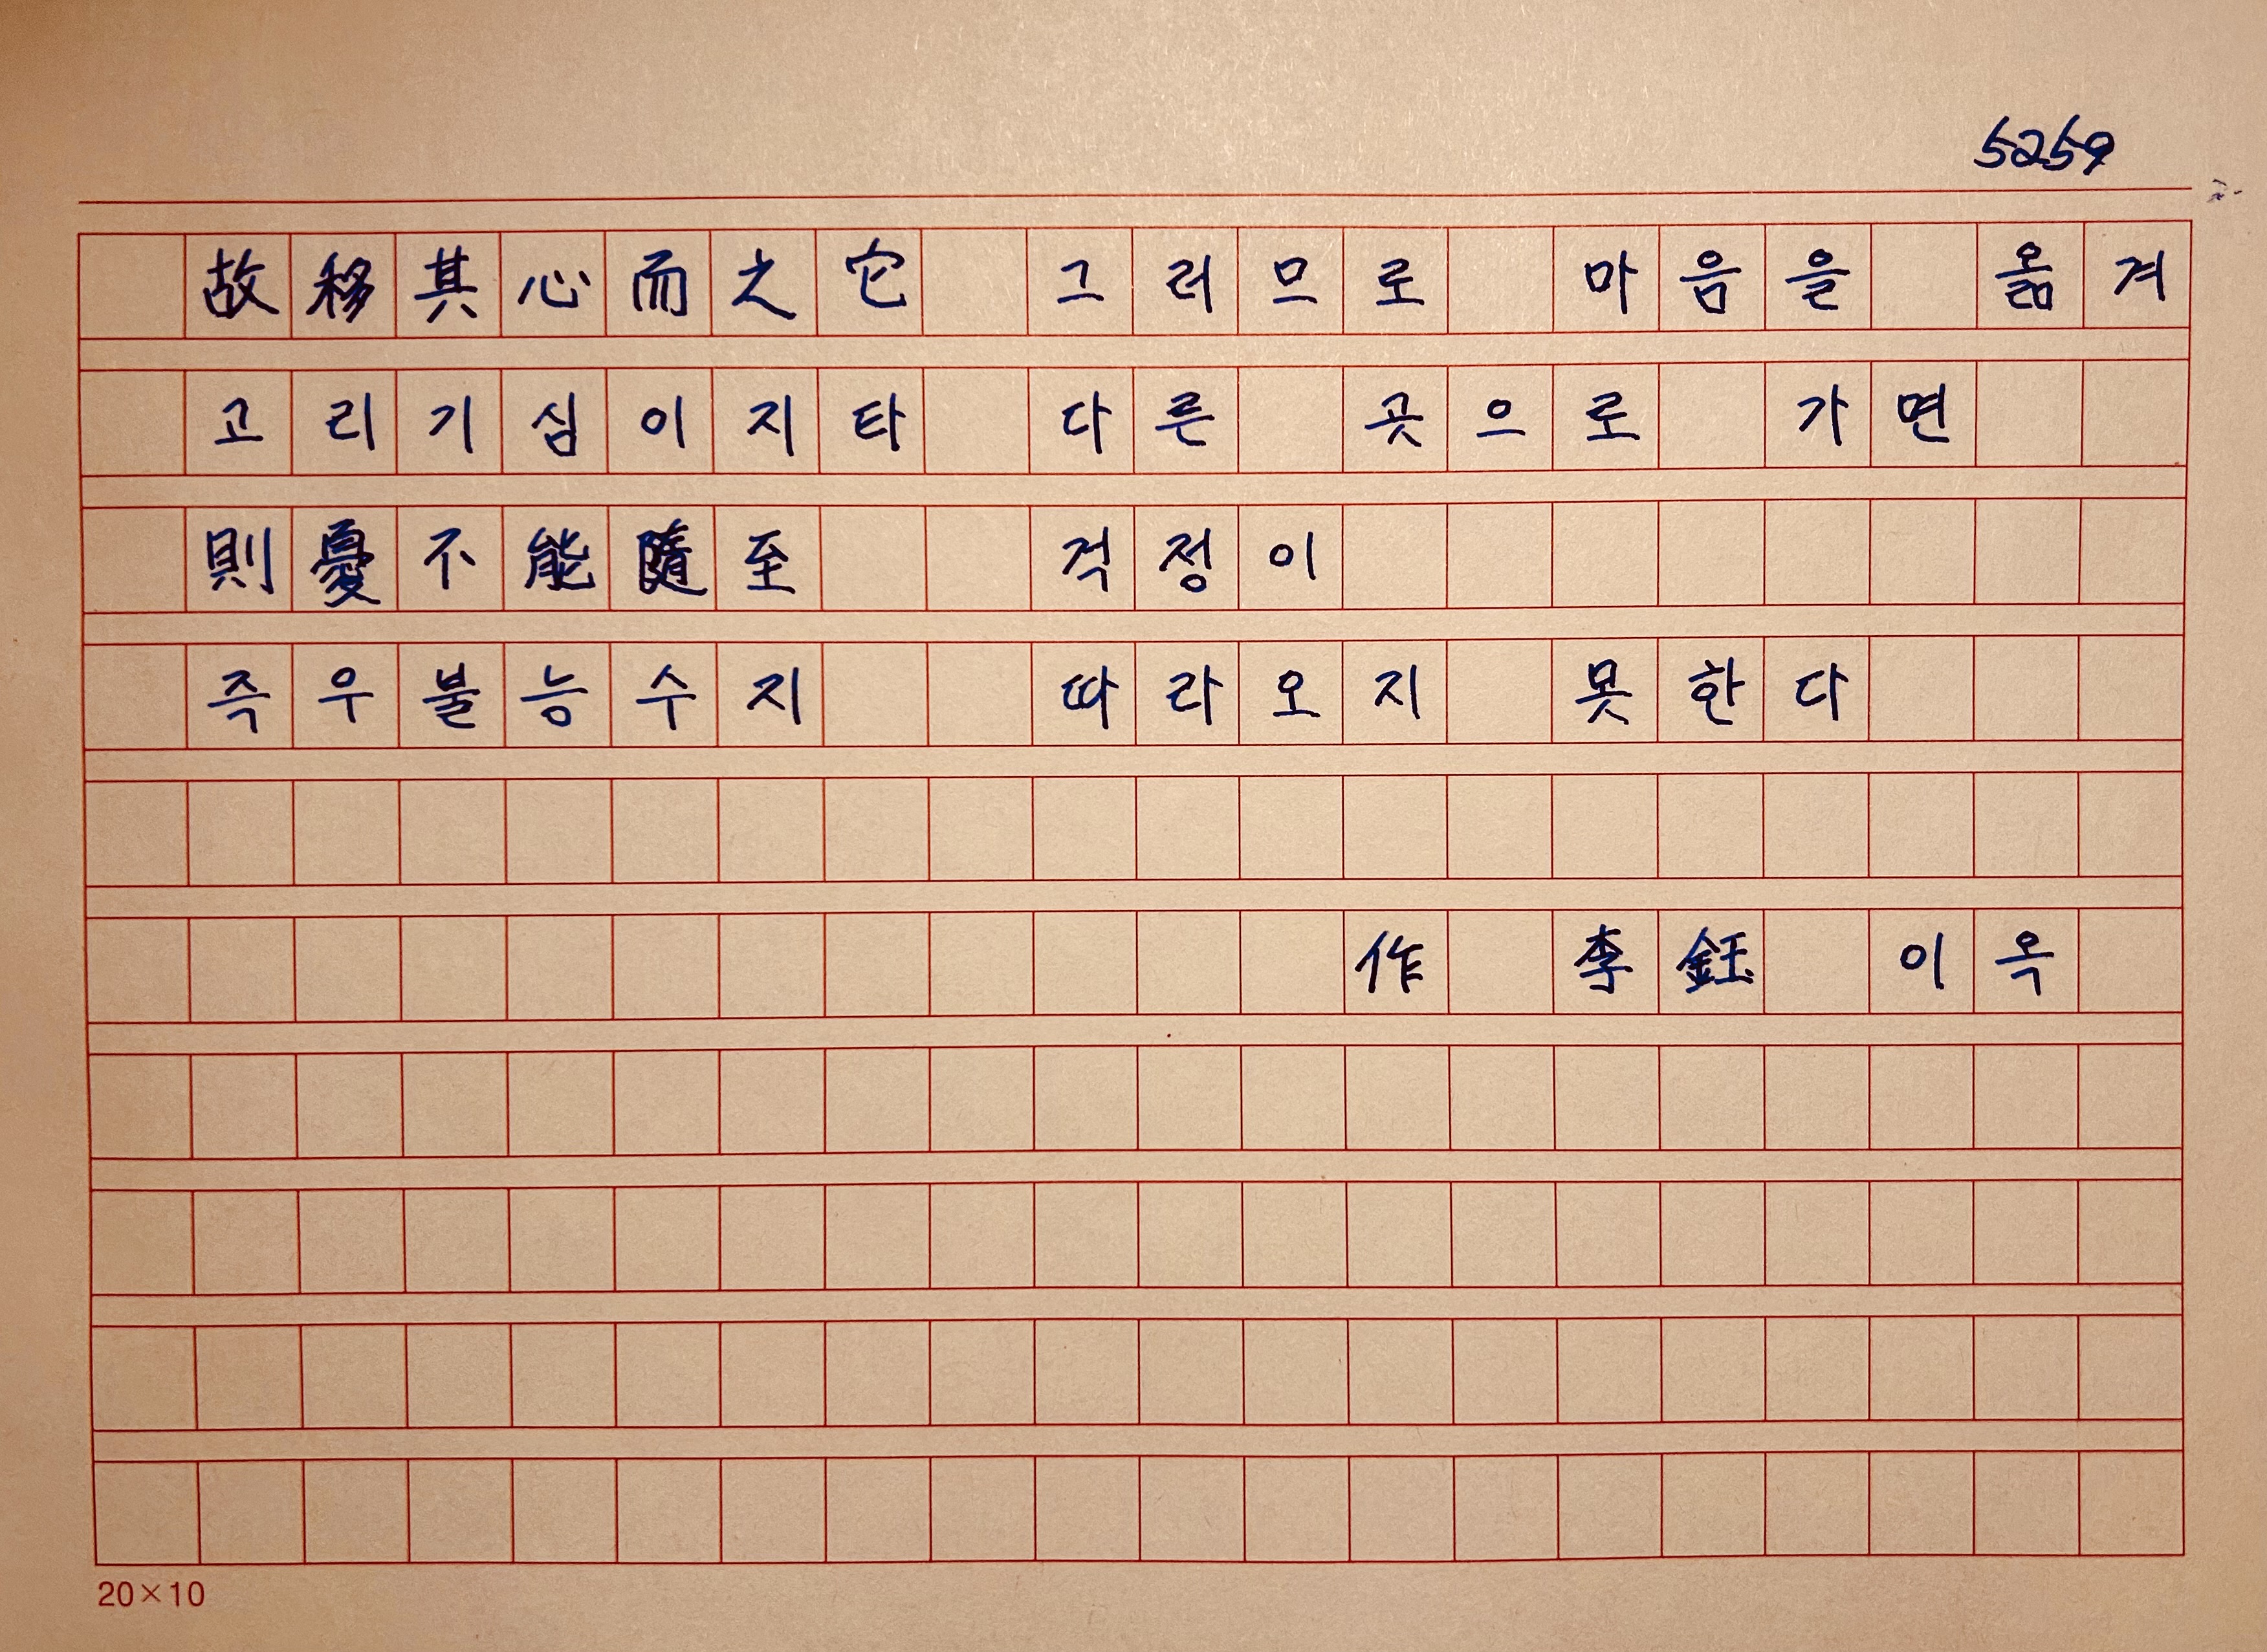 5259
故移其心而之它 그러므로 마음을 옮겨
고리기심이지타 다른 곳으로 가면
則憂不能隨至 걱정이
즉우불능수지 따라오지 못한다
作 李鈺 이옥
20×10